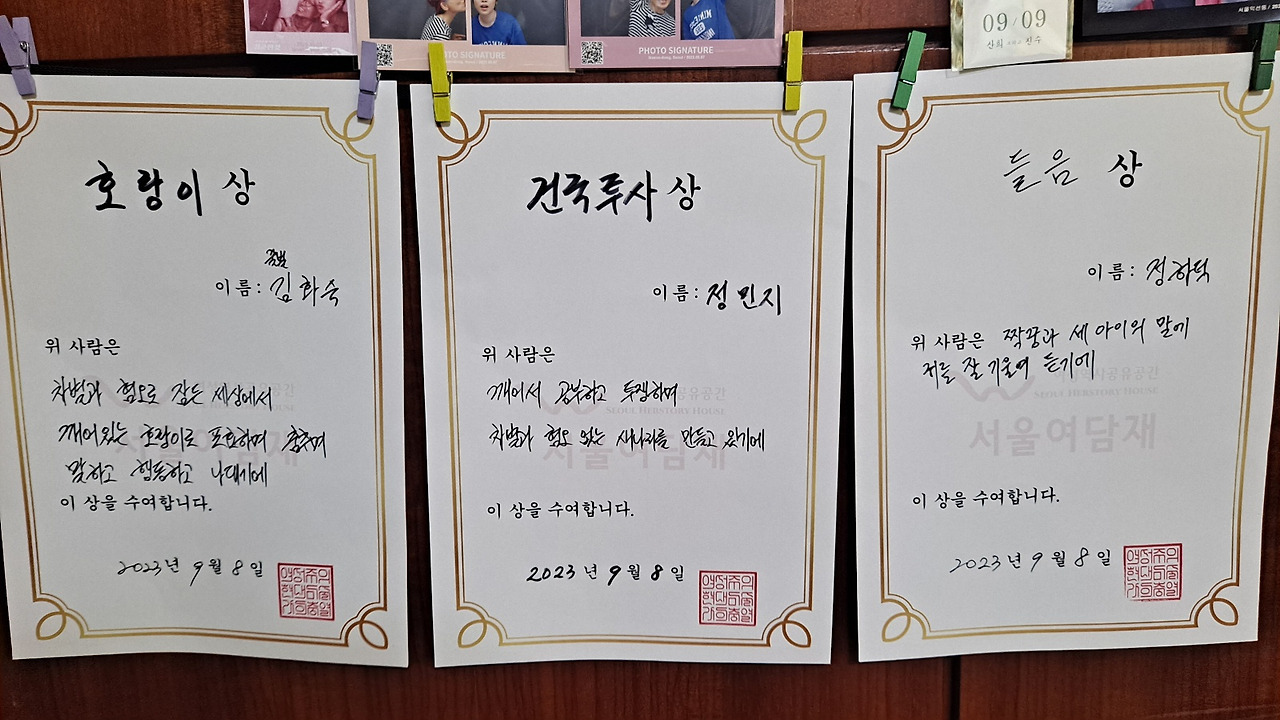 PHOTO SIGNATURE
PHOTO SIGNATURE
09/09
호랑이 상
꽃별
이름: 김화숙
위 사람은
차별과 혐오로 잠든 세상에서
깨어있는 호랑이로 포효하며 춤추며
말하고 행동하고 나대기에
이 상을 수여합니다.
2023년 9월 8일
건국투사 상
이름: 정민지
위 사람은
깨어서 공부하고 투쟁하며
차별과 혐오 없는 새나라를 만들고 있기에
이 상을 수여합니다.
2023년 9월 8일
들음 상
이름: 정하덕
위 사람은 짝꿍과 세 아이의 말에
귀를 잘 기울여 듣기에
이 상을 수여합니다.
2023년 9월 8일
공유공간
SEOUL HERSTORY HOUSE
서울여담재
역사공유공간
SEOUL HERSTORY HOUSE
서울여담재